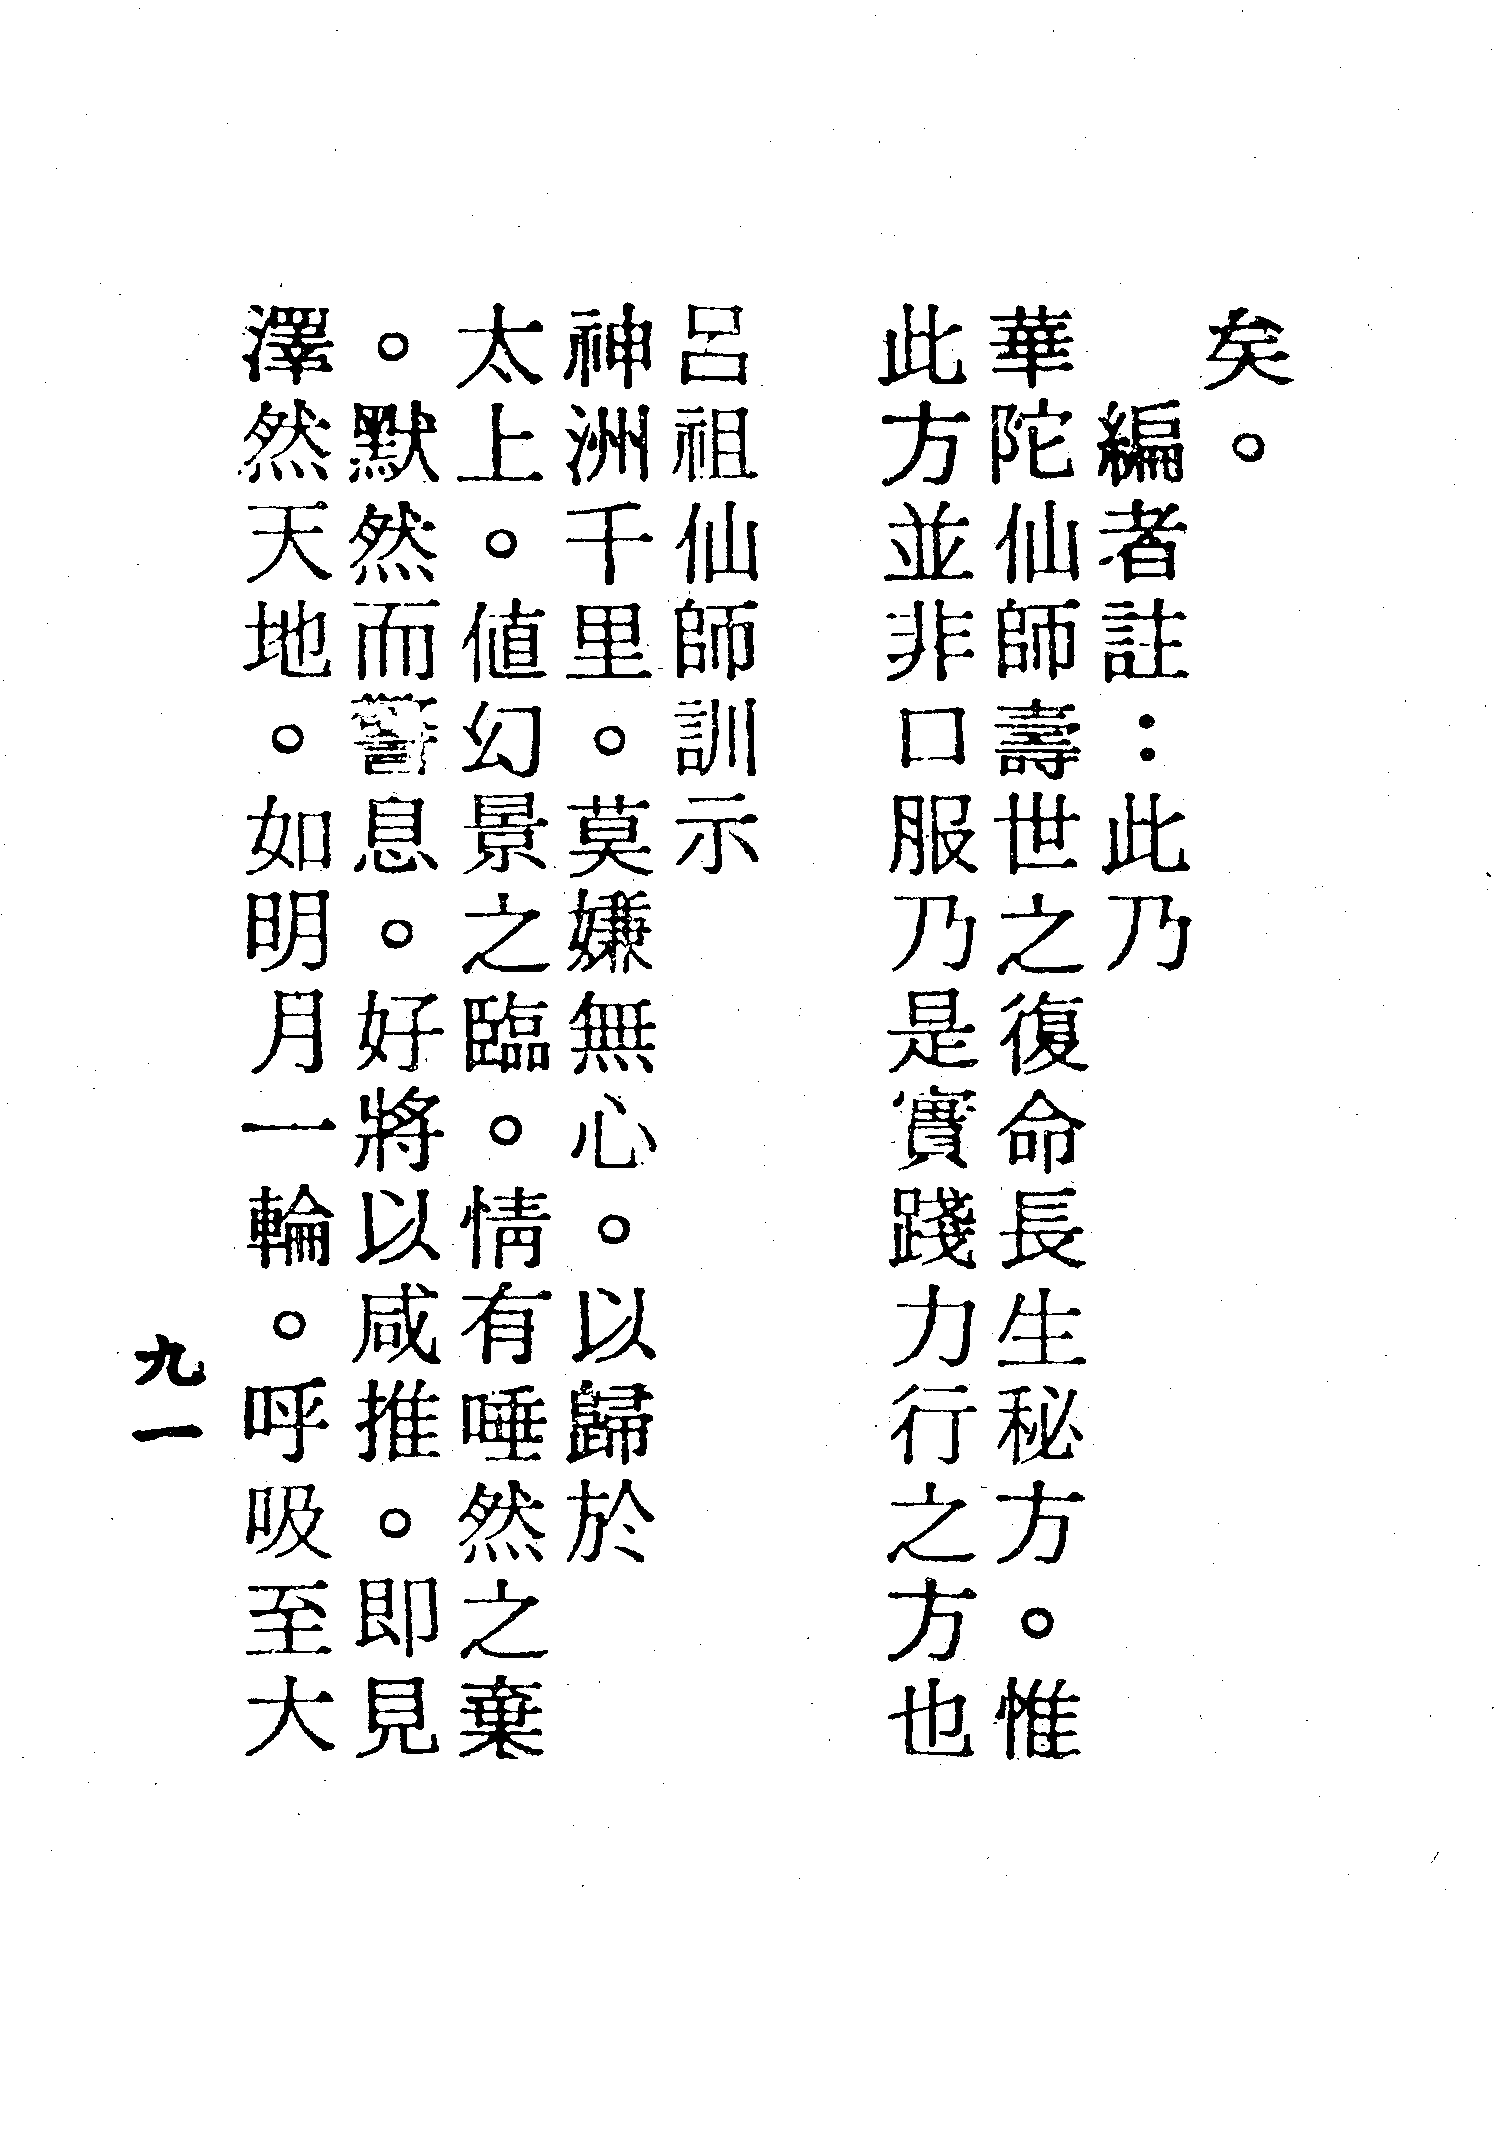 矣。
編者註：此乃
華陀仙師壽世之復命長生秘方。惟
此方並非口服乃是實踐力行之方也
呂祖仙師訓示
神洲千里。莫嫌無心。以歸於
太上。値幻景之臨。情有唾然之棄
。默然而警息。好將以咸推。即見
澤然天地。如明月一輪。呼吸至大
九一